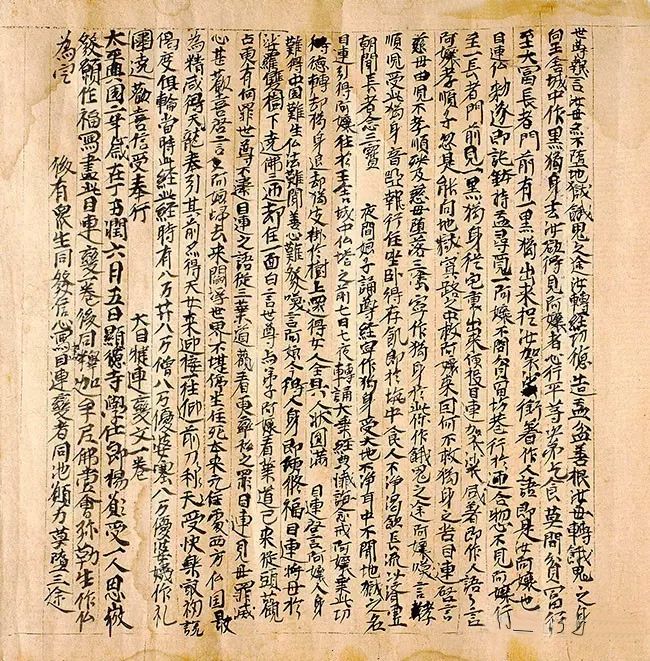 世尊報言汝母亦不墮地獄餓鬼之途汝轉經功德造盂盆善根汝母轉餓鬼之身
向王舍城中作黑狗身去汝欲得見阿孃者心行平等次弟乞食莫問貧富行
至大富長者門前有一黑狗出來捉汝袈裟銜著作人語即是汝阿孃也
目連佛勅遂即託鉢持盂尋覓阿孃不問貧富坊巷行於迊合惣不見阿孃行
至一長者門前見一黑狗身從宅裏出來便捉目連袈裟銜著即作人語言
阿孃孝順子忽是能向地獄冥路之中救阿孃來因何不救狗身之苦目連啓言
慈母由兒不孝順殃及慈母墮落三塗寧作狗身於此你作餓鬼之途阿孃喚言孝
順兒受此狗身音啞報行住坐臥得存飢即於坑中食人不淨渴飲長流以濟虛
朝聞長者念三寶 夜聞娘子誦尊經寧作狗身受大地不淨耳中不聞地獄之名
目連引得阿孃往於王舍城中仏塔之前七日七夜轉誦大乘經典懺悔念戒阿孃乘此功
德轉却狗身退却狗皮掛於樹上還得女人全具人狀圓滿 目連啓言阿孃人身
難得中國難生仏法難聞善心難發喚言阿孃今得人身即便修福目連將母於
娑羅雙樹下遶佛三迊却住一面白言世尊与弟子阿孃看業道已來從頭觀
占更有何罪世尊不違目連之語從三業道觀看更率私之罪目連見母罪滅
心甚歡喜啓言阿孃歸去來閻浮世界不堪停生住死本來无住處西方仏國最
為精感得天龍奉引其前亦得天女來迎接一往仰前刀利天受快樂最初說
偈度俱輪當時此經時有八万卄八万僧八万優婆塞八万優婆姨作礼
圍遶歡喜信受奉行 大目犍連變文一卷
太平興國二年歲在丁丑潤六月五日顯德寺學仕郎楊願受一人思微
發願作福寫盡此目連變一卷後同釋迦牟尼佛壹會弥勒生作仏
為定 後有衆生同發信心寫目連變者同池願力莫墮三途